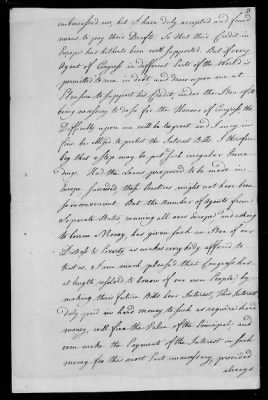 embarrassed me, but I have duly accepted and found
means to pay their Drafts. So that their Credit in
Europe has hitherto been well supported. But if every
Agent of Congress in different Parts of the World is
permitted to run in debt and draw upon me at
Pleasure to support his Credit, under the Idea of its
being necessary to do so for the Honour of Congress, the
Difficulty upon me will be too great and I may in
fine be obliged to protest the Interest Bills. I therefore
beg that a stop may be put to such irregular Procee-
dings. Had the Loans proposed to be made in
Europe succeeded, these Practices might not have been
so inconvenient. But the Number of Agents from
Separate States running all over Europe and asking
to borrow Money, has given such an Idea of our
Distress & Poverty as makes every body affraid to
trust us. I am much pleased that Congress has
at length resolved to borrow of our own People, by
making their future Bills bear Interest, This Interest
duly paid in hard money to such as require hard
money, will fix the Value of the Principal, and
even make the Payment of the Interest in hard
money for the most Part unnecessary, provided
always